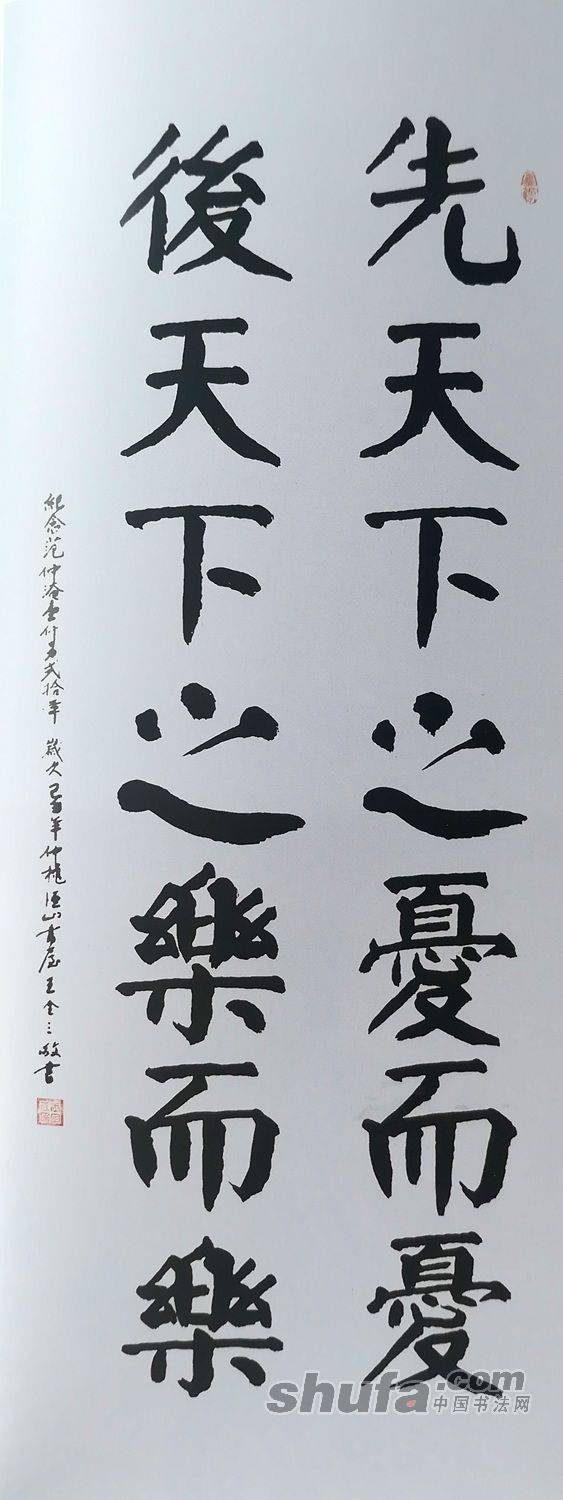 先天下之憂而憂
後天下之樂而樂
紀念范仲淹 年 歲次己 年仲 山書屋王金三敬書
shufa.com
中国书法网